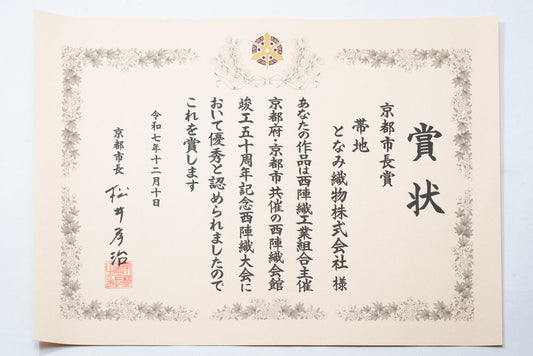 賞状
京都市長賞
帯地
となみ織物株式会社 様
あなたの作品は西陣織工業組合主催
京都府・京都市共催の西陣織会館
竣工五十周年記念西陣織大会に
おいて優秀と認められましたので
これを賞します
令和七年十二月十日
京都市長 松井孝治